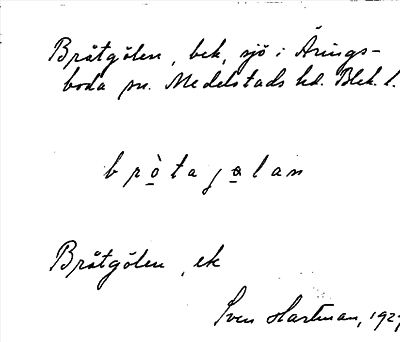 Bråtgölen, bek, sjö i Årings-
boda sn. Medelstads hd. Blek. l.
bròta jölan
Bråtgölen, ek
Sven Hartman, 1927